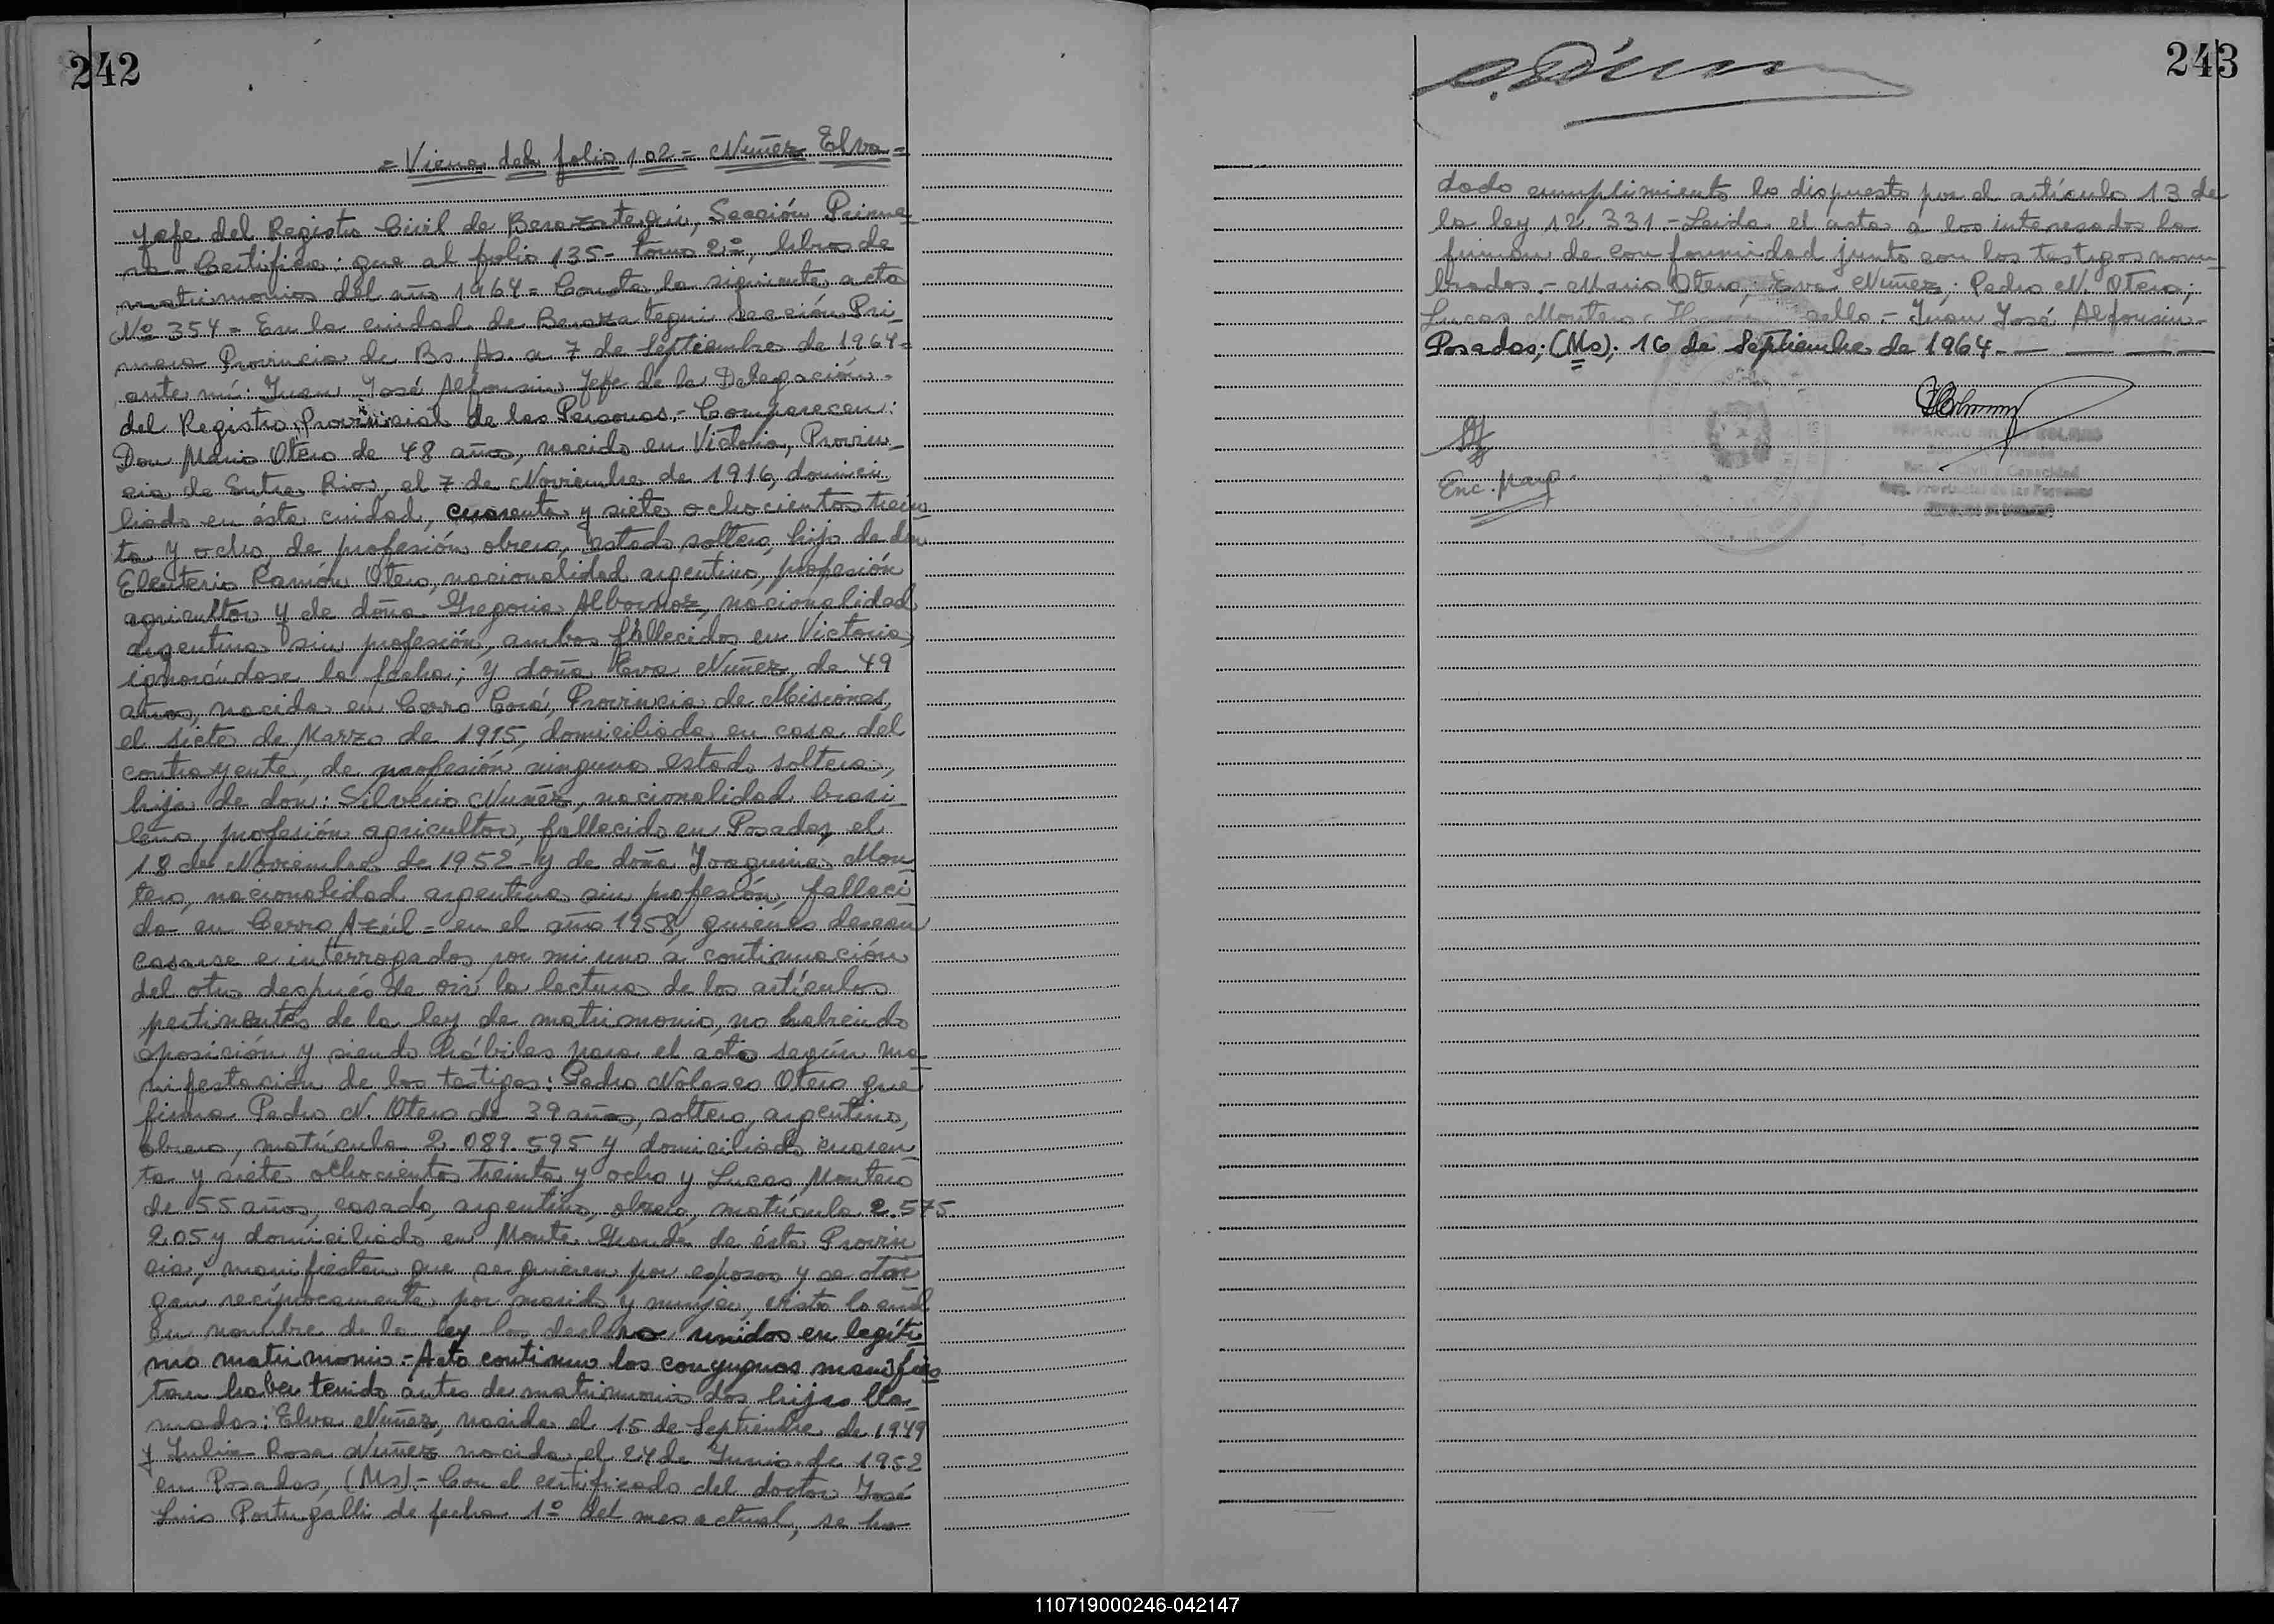 242
= Viene del folio 102 = Nuñez Elva =
Jefe del Registro Civil de Berazategui, Sección Prime-
ra - Certifica: que al folio 135 - tomo 2º, libros de
matrimonios del año 1964 = Consta la siguiente acta
Nº 354 = En la ciudad de Berazategui sección Pri-
mera Provincia de Bs. As. a 7 de Septiembre de 1964 =
ante mí: Juan José Alfonsin Jefe de la Delegación -
del Registro Provincial de las Personas, - Comparecen:
Don Mario Otero de 48 años, nacido en Victoria, Provin-
cia de Entre Rios, el 7 de Noviembre de 1916, domici-
liado en ésta ciudad, cuarenta y siete ochocientos trein-
ta y ocho, de profesión obrero, estado soltero, hijo de don
Eleuterio Ramón Otero, nacionalidad argentino, profesión
agricultor y de doña Gregoria Albornoz, nacionalidad
argentina sin profesión, ambos fallecidos en Victoria,
ignorándose la fecha; y doña Eva Nuñez, de 49
años, nacida en Cerro Corá, Provincia de Misiones,
el siete de Marzo de 1915, domiciliada en casa del
contrayente, de profesión ninguna estado soltera,
hija de don: Silverio Nuñez, nacionalidad brasi-
leño, profesión agricultor, fallecido en Posadas, el
18 de Noviembre de 1952 - y de doña Joaquina Mon-
tero, nacionalidad argentina sin profesión, falleci-
da en Cerro Azúl = en el año 1958, quienes desean
casarse e interrogados por mi uno a continuación
del otro después de oir la lectura de los artículos
pertinentes de la ley de matrimonio, no habiendo
oposición y siendo hábiles para el acto según ma-
nifestación de los testigos: Pedro Nolasco Otero que
firma Pedro N. Otero de 39 años, soltero, argentino,
obrero, matrícula 2.089.595 y domiciliado cuaren-
ta y siete ochocientos treinta y ocho y Lucas Montero
de 55 años, casado, argentino, obrero, matrícula 2.575.
205 y domiciliado en Monte Grande de ésta Provin-
cia, manifiestan que se quieren por esposos y se otor-
gan recíprocamente por marido y mujer, visto lo cuál
en nombre de la ley los declaro unidos en legíti-
mo matrimonio. - Acto continuo los conyugues manifies-
tan haber tenido antes de matrimonio dos hijas lla-
madas: Elva Nuñez, nacida el 15 de Septiembre de 1949
y Julia Rosa Nuñez nacida el 24 de Junio de 1952
en Posadas, (Ms). - Con el certificado del doctor José
Luis Portugalli de fecha 1º del mes actual, se ha
243
dado cumplimiento lo dispuesto por el artículo 13 de
la ley 12.331 - Leida el acta a los interesados la
firman de conformidad junto con los testigos nom-
brados. - Mario Otero, Eva Nuñez; Pedro N. Otero;
Lucas Montero sello. - Juan José Alfonsin -
Posadas; (Ms); 16 de Septiembre de 1964. -
Enc. Mayo
110719000246-042147